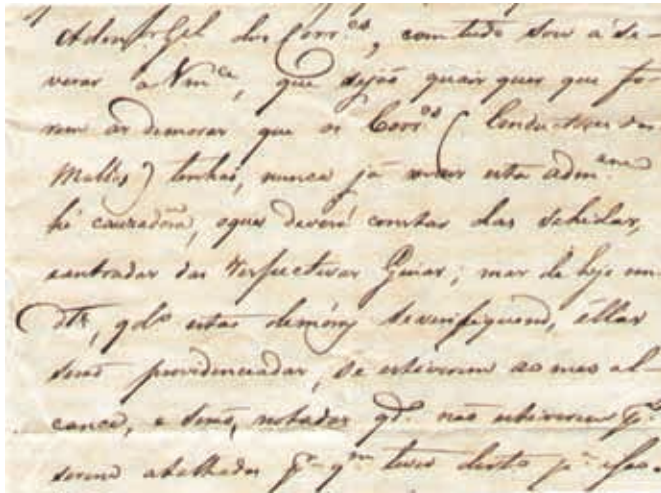 Adm.ʳ Gˡ dos Corr.ᵒˢ, com tudo sou a se-
verar a Vm.ᶜᵉ, que sejão quais quer que fo-
rem as demoras que os Corr.ᵒˢ (Conductores das
Mallas) tenhaõ, nunca já mais esta adm.ᵃᵐ
hé cauzadora, oque deverá constar das sahidas,
eentradas das respectivas Guias; mas de hoje em
dte, qdᵒ estas demóras severifiquem, éllas
seraõ providenciadas, se estiverem ao meo al-
cance, e seraõ, notadas qdᵒ naõ estiverem pᵃ
serem atalhadas pʳ qᵐ tiver disto